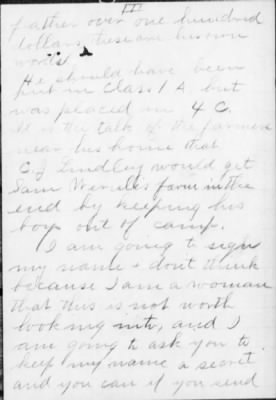 III
father over one hundred
dollars, these are his own
words.
He should have been
put in Class 1 A. but
was placed in 4 C.
It is the talk of the farmers
near his home that
C. J. Lindley would get
Sam farm in the
end by keeping his
boys out of camp.
I am going to sign
my name & dont think
because I am a woman
that this is not worth
looking into, and I
am going to ask you to
keep my name a secret
and you can if you send